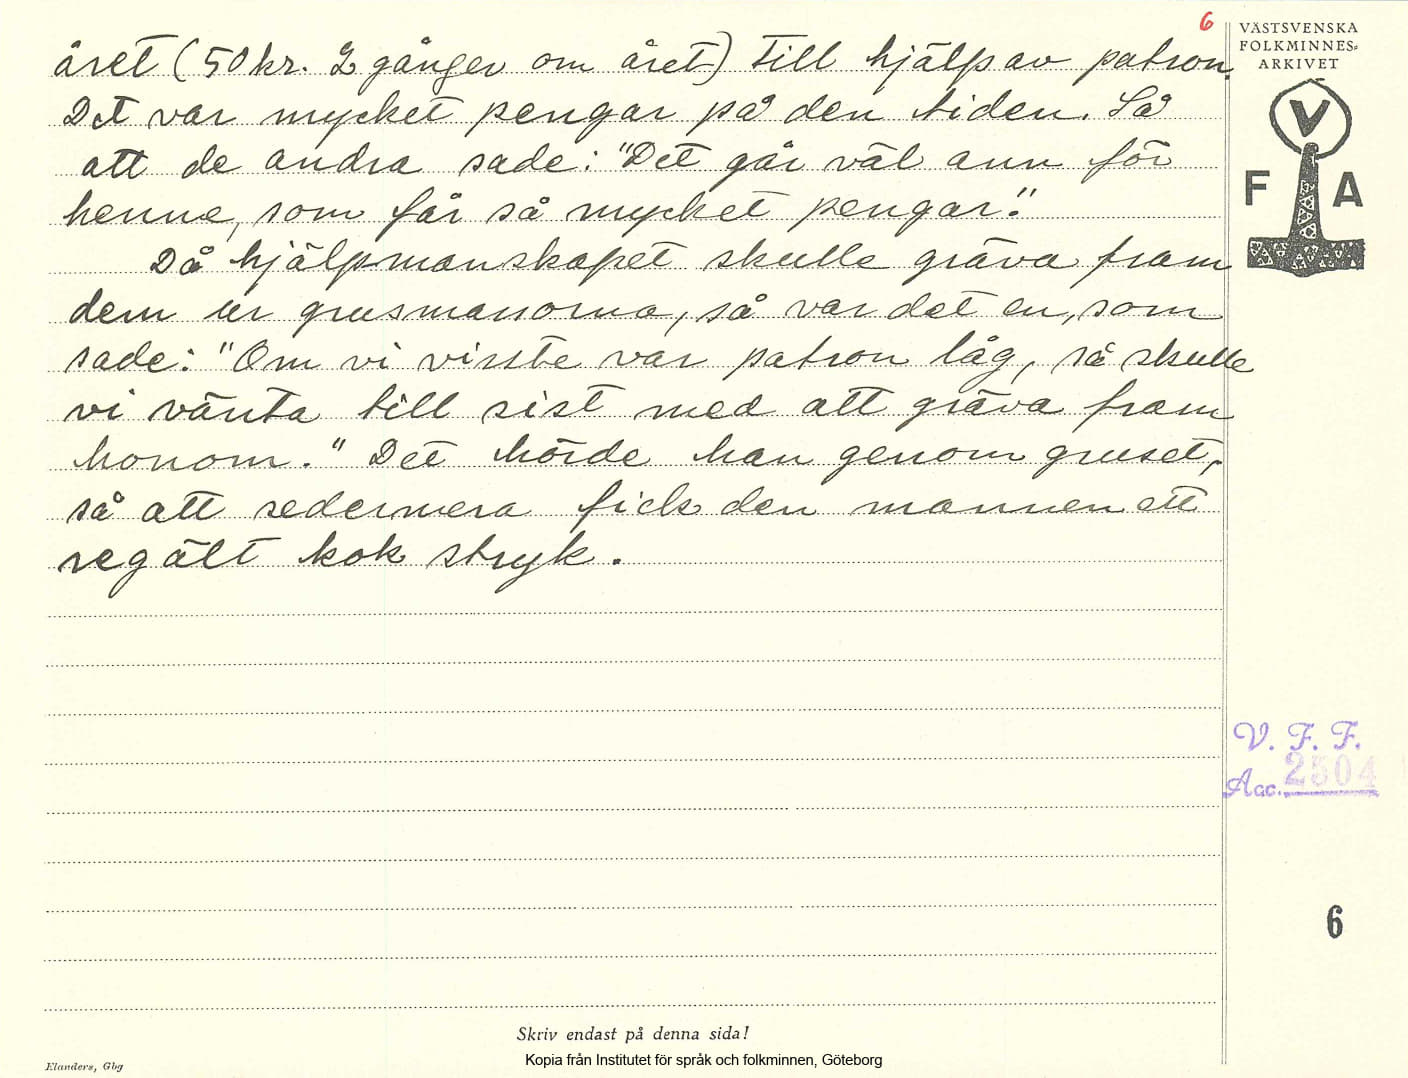 6
VÄSTSVENSKA
FOLKMINNES-
ARKIVET
V
F A
året (50 kr. 2 gånger om året) till hjälp av patron.
Det var mycket pengar på den tiden. Så
att de andra sade: "Det går väl ann för
henne, som får så mycket pengar."
Då hjälpmanskapet skulle gräva fram
dem ur grusmassorna, så var det en, som
sade: "Om vi visste var patron låg, så skulle
vi vänta till sist med att gräva fram
honom." Det hörde han genom gruset,
så att sedermera fick den mannen ett
regält kok stryk.
V. F. F.
Acc. 2504
6
Skriv endast på denna sida!
Elanders, Gbg
Kopia från Institutet för språk och folkminnen, Göteborg